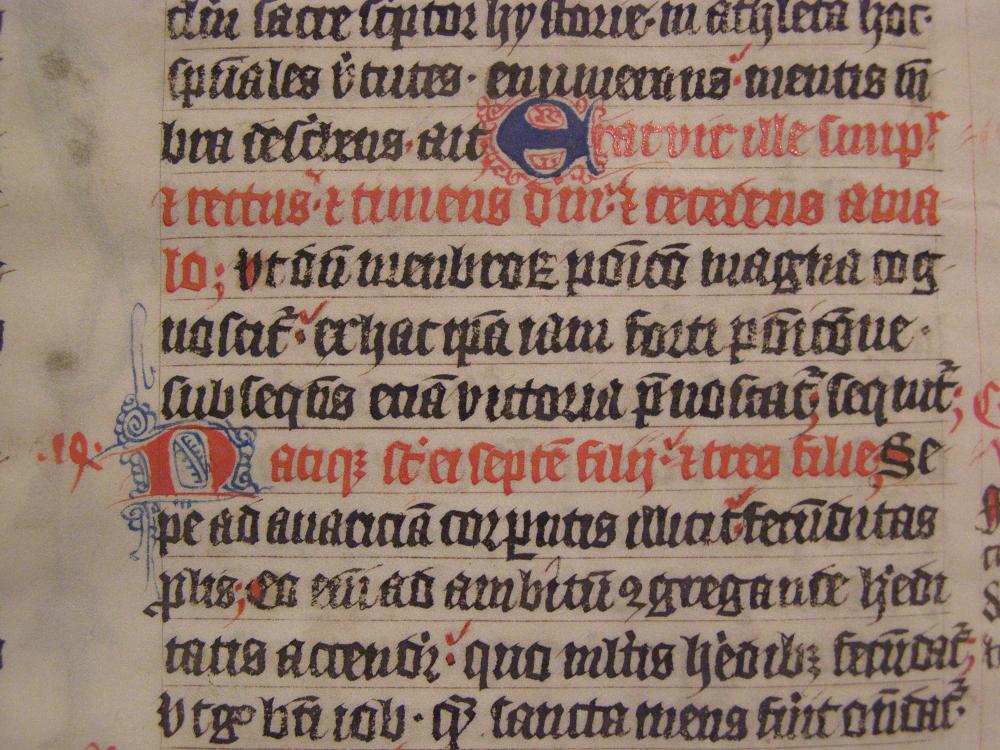 dum sacre scriptor hystorie in athleta hoc
spūales v̄tutes · enumerans mentis mē
bra describens · ait Erat vir ille simp
⁊ rectus · ⁊ timens dm̄ ⁊ recedens a ma
lo ; Vt dū menbroꝝ p̄dictōꝫ magna cog
noscit̄ ex hac ip̄a iam forti
subseqn̄s eciā victoria p̄noscat̄ ; sequit̄ ;
.ıꝗ. Natiqꝫ st̄ ei septē filij · ⁊ tres filie ; Se
pe ad auariciā cor pntis illicit fecūditas
plis ; eo em̄ ad ambitū ꝯgregande h̓edi
tatis accendit̄ · quo ml̄tis h̓edibꝫ fecūdat̄ ;
Vt g̊ bt̄i iob · sancta mens fūit on̄dat̄